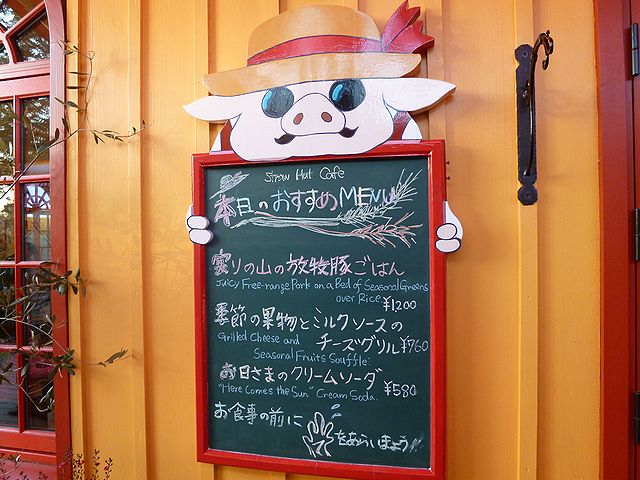 Straw Hat Cafe
本日のおすすめMENU
実りの山の放牧豚ごはん
Juicy Free-range Pork on a Bed of Seasonal Greens
over Rice ¥1,200
季節の果物とミルクソースの
チーズグリル ¥760
Grilled Cheese and
Seasonal Fruits Souffle:
お日さまのクリームソーダ
"Here Comes the Sun" Cream Soda. ¥580
お食事の前に
をあらいましょう!!